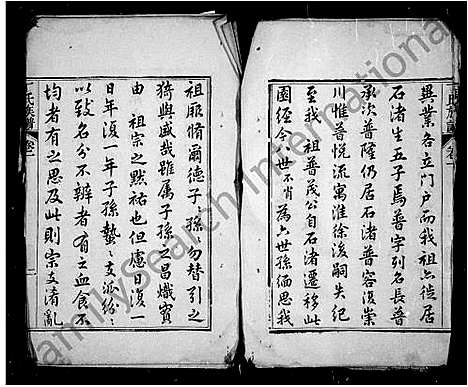 異業各立門戶而我祖亦徙居
石渚生五子焉普字列名長普
承次普隆仍居石渚普容復崇
川惟普悦流寓淮徐後嗣失紀
至我祖普茂公自石渚遷移此
園經今八世不肖為六世孫緬思我
祖厥脩爾德子孫勿替引之
猗與盛哉雖属子孫之昌熾實
由祖宗之默祐也但慮日復一
日年復一年子孫蟄蟄支派紛紛
以致名分不辨者有之血食不
均者有之思及此則宗支淆亂
氏族譜
卷一
二
FamilySearch International